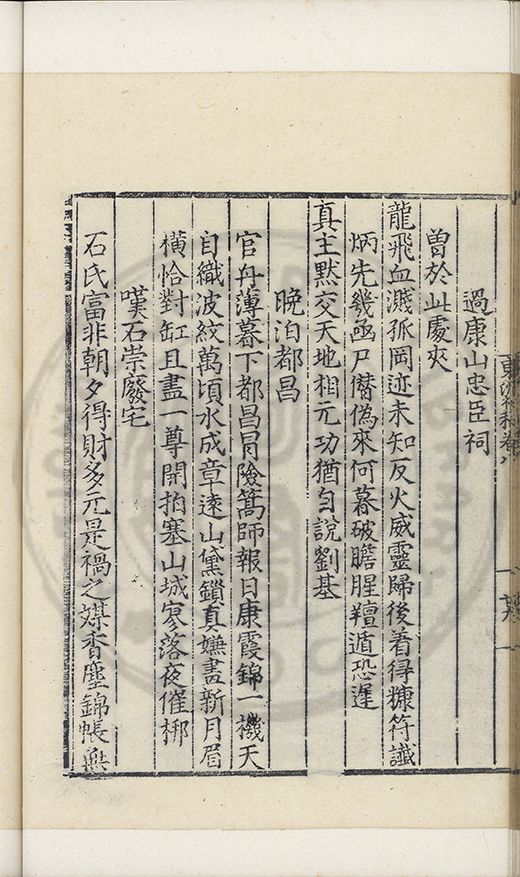 過康山忠臣祠
曽於此處夾
龍飛血濺孤岡迹未知反火威靈歸後着得糠符讖
炳先幾函尸僣偽來何暮破膽腥羶遁恐遲
真主黙交天地相元功猶自說劉基
晚泊都昌
官舟薄暮下都昌冐險篙師報日康霞錦一襪天
自織波紋萬頃水成章遠山黛鎖真嫌盡新月眉
橫恰對缸且盡一尊開拍塞山城寥落夜催梆
嘆石崇廢宅
石氏富非朝夕得財多元是禍之媒香塵錦帳無